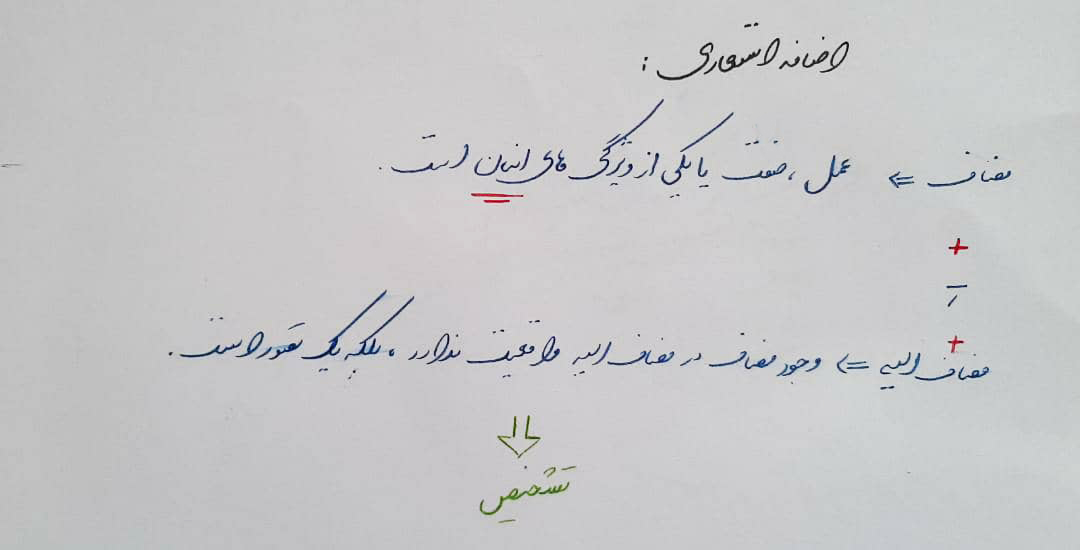 اضافه استعاری :
مضاف ⇐ عمل ، صفت یا یکی از ویژگی های انسان است .
+
ـِ
+
مضاف الیه ⇐ وجود مضاف در مضاف الیه واقعیت ندارد ، بلکه یک تصور است .
⇓
تشخیص